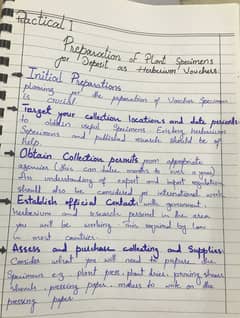 Practical 1
Preparation of Plant Specimens
for Deposit as Herbarium Vouchers
Initial Preparations
planning for the preparation of Voucher Specimen
is crucial
Target your collection locations and date periods
to obtain useful Specimens. Existing herbarium
Specimens and published research should be of
help.
Obtain Collection permits from appropriate
agencies (this can take months to over a year)
An understanding of export and import regulations
should also be considered for international work
Establish official Contacts with government,
herbarium and research personnel in the area
you will be working. This required by law
in most countries.
Assess and purchase collecting and Supplies
Consider what you will need to prepare the
Specimens e.g. plant press, plant drier, pruning shears
shovels, pressing paper, makers to write on the
pressing paper